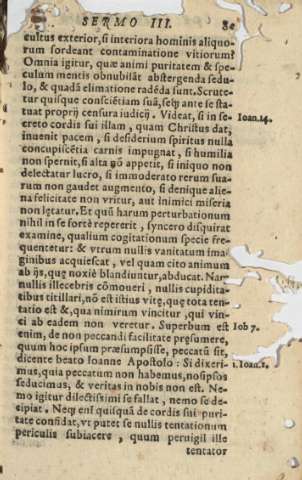 SERMO III. 80
cultus exterior, si interiora hominis aliquo-
rum sordeant contaminatione vitiorum?
Omnia igitur, quæ animi puritatem & spe-
culum mentis obnubilāt abstergenda sedu-
lo, & quadā elimatione radēda sunt. Scrute-
tur quisque consciētiam suā, seq̃ ante se sta-
tuat proprij censura iudicij. Videat, si in se-
creto cordis sui illam, quam Christus dat,
Ioan. 14.
inuenit pacem, si desiderium spiritus nulla
concupiscētia carnis impugnat, si humilia
non spernit, si alta nō appetit, si iniquo non
delectatur lucro, si immoderato rerum sua-
rum non gaudet augmento, si denique alie-
na felicitate non vritur, aut inimici miseria
non lętatur. Et qũ harum perturbationum
nihil in se fortè repererit, syncero disquirat
examine, qualium cogitationum specie fre-
quentetur: & vtrum nullis vanitatum ima-
ginibus acquiescat, vel quam cito animum
ab ijs, quę noxiè blandiuntur, abducat. Nam
nullis illecebris cōmoueri, nullis cupidita-
tibus titillari, nō est istius vitę, quę tota ten-
tatio est &, qua nimirum vincitur, qui vin-
ci ab eadem non veretur. Superbum est
enim, de non peccandi facilitate pręsumere,
Iob 7.
quum hoc ipsum præsumpsisse, peccatū sit,
dicente beato Ioanne Apostolo: Si dixeri-
mus, quia peccatum non habemus, nosipsos
1. Ioan. 1.
seducimus, & veritas in nobis non est. Ne-
mo igitur dilectissimi se fallat, nemo se de-
cipiat. Neq; eni̅ quisquā de cordis sui puri-
tate confidat, vt putet se nullis tentationum
periculis subiacere, quum peruigil ille
tentator